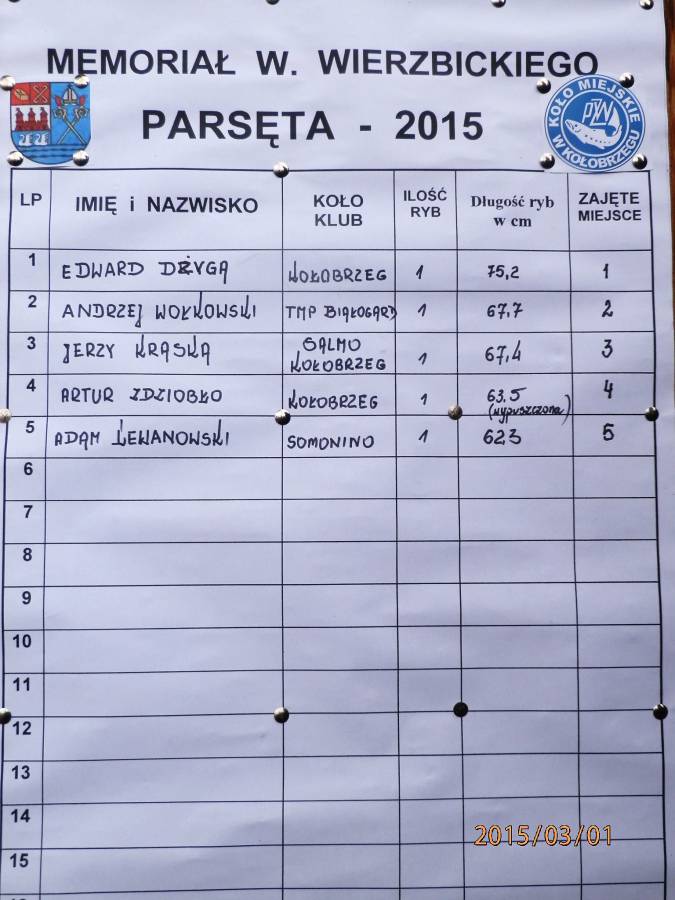 MEMORIAŁ W. WIERZBICKIEGO
PARSĘTA - 2015
KOŁO MIEJSKIE
PZW
W KOŁOBRZEGU
LP IMIĘ i NAZWISKO KOŁO KLUB ILOŚĆ RYB Długość ryb w cm ZAJĘTE MIEJSCE
1 EDWARD DRYGA KOŁOBRZEG 1 75,2 1
2 ANDRZEJ WOŁKOWSKI TMP BIAŁOGARD 1 67,7 2
3 JERZY KRASKA SALMO KOŁOBRZEG 1 67,4 3
4 ARTUR ZDZIOBŁO KOŁOBRZEG 1 63,5 (wypuszczona) 4
5 ADAM LEWANOWSKI SOMONINO 1 62,3 5
6
7
8
9
10
11
12
13
14
15
2015/03/01